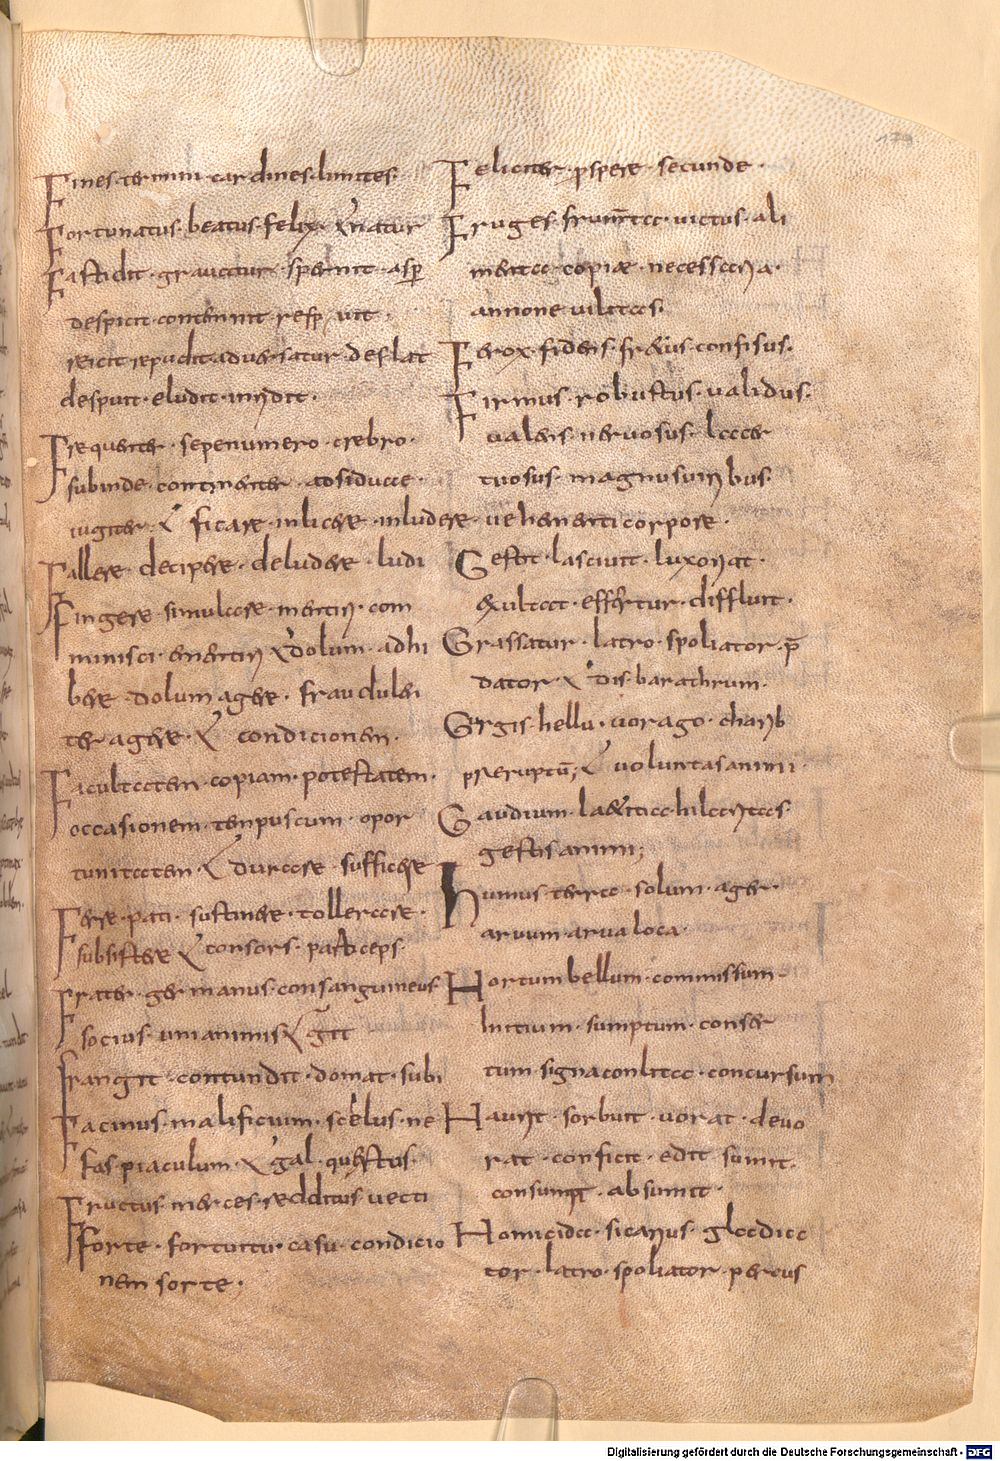 179
Fines. termini. cardines. limites.
Fortunatus. beatus. felix. & natur
Fastidit. grauatur. spernit. asp
despicit. contemnit. resp uit.
reicit repudit aduersatur. deflat
despuit. eludit. inridit.
Frequenter. sepenumero. crebro.
subinde. continenter. assiduae.
iugiter. & ficare. inlicere. inludere.
Fallere decipere. deludere. ludi
Fingere simulare. mentiri. com
minisci. ementiri & dolum. adhi
bere dolum agere. fraudulen
ter agere. & condicionem.
Facultatem. copiam. potestatem.
occasionem. tenpuscum. opor
tunitatem. & durare. sufficere
Ferre. pati. sustinere. tollerare.
subsistere & consors. particeps.
Frater. germanus. consanguineus
socius. unanimis & git
frangit. contundit. domat. subi
Facinus. malificium. scelus. ne
fas. piaculum. & gal. questus.
Fructus. merces. redditus. uecti
forte. fortuitu. casu. condicio
nem sorte;
Feliciter. pspere. secunde.
Fruges. frumta. uictus. ali
menta. copiæ. necessaria.
annone uilitas.
Ferox. fidens. fretus. confisus.
Firmus. robustus. ualidus.
ualens. neruosus. lacer
tuosus. magnus uiribus.
uehementi corpore.
Gestit. lasciuit. luxoriat.
exultat. effertur. diffluit.
Grassatur. latro. spoliator. p̄
dator. & dis. barathrum.
Gurgis. hellu. uorago. charib
preruptū; & uoluntas animi.
Gaudium. laetitia. hilaritas.
gestis animi;
Humus. terra. solum. ager.
aruum. arua loca.
Hortum bellum. commissum.
Initium. sumptum. conser
tum. signa conlata. concursum
Haurit. sorbuit. uorat. deuo
rat. conficit. edit. sumit.
consumit. absumit.
Homicida. sicarius. gladia
tor. latro. spoliator. percus
Digitalisierung gefördert durch die Deutsche Forschungsgemeinschaft - DFG